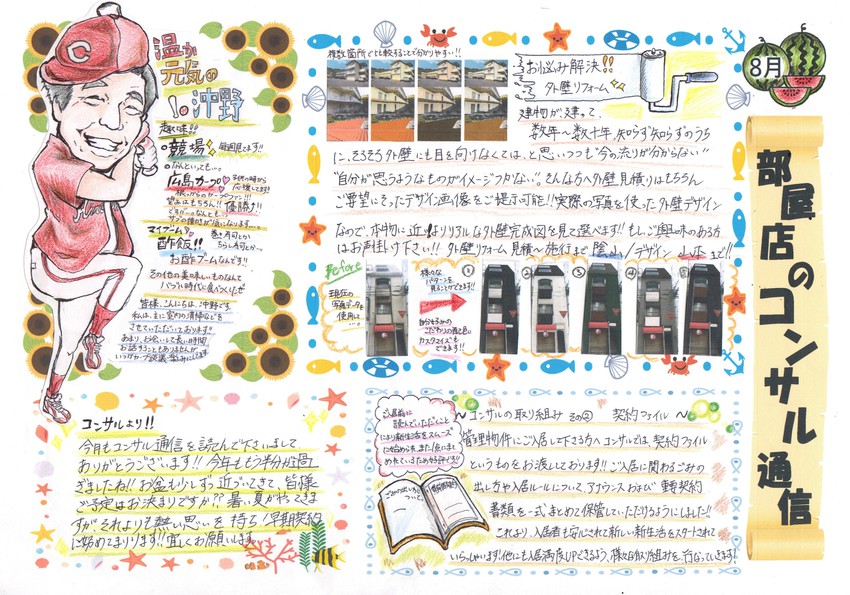 8月
部屋店のコンサル通信
温か
元気の
沖野
C
趣味!!
競馬 毎週見てます!!
なんといっても…
広島カープ 子供の時から
応援してます!!
根っからのカープファン!!
望みはもちろん!! 優勝!!
マイブーム
巻き寿司とか
酢飯!! ちらし寿司とか…
お酢ブームなんです
その他の美味しいものなんて
バブル時代に食べつくしたぜ
皆様、こんにちは、沖野です。
私は、主に室内の清掃などを
させていただいております。
あまり、お会いして長い時間
お話することもありませんが
複数箇所で比較することで分かりやすい!!
お悩み解決!!
外壁リフォーム
建物が建って、
数年〜数十年 知らず知らずのうち
に、そろそろ外壁にも目を向けなくては、と思いつつも“今の流行が分からない”
“自分が思うようなものがイメージつかない”。そんな方へ外壁見積りはもちろん
ご要望にそったデザイン画像をご提示可能!! 実際の写真を使った外壁デザイン
なので、本物に近いリアルな外壁完成図を見て選べます!! もし、ご興味のある方
はお声掛け下さい!! 外壁リフォーム見積〜施行まで 陰山/デザイン 山本まで!!
Before
現在の
写真データを
使用して…
様々な
パターンを
見ることができます!
自分好みの
こだわりの配色に
カスタマイズも
できます!!
① ② ③ ④ ⑤
コンサルより!!
今月もコンサル通信を読んで下さいまして
ありがとうございます!! 今年ももう半分が過
ぎましたね!! お盆も少しずつ近づいてきて、皆様
ご予定はお決まりですか?? 暑い夏がやってきま
すが、それよりも熱い思いを持ち!早期契約
に努めてまいります!! 宜しくお願いします
ご入居前に
読んでいただくこと
により新生活をスムーズ
に始められ、また1点にまと
められているため好評です!!
ごみの出し方に
ついて
〜コンサルの取り組み その② 契約ファイル〜
管理物件にご入居して下さる方へコンサルでは、契約ファイル
というものをお渡ししております!! ご入居に関わるごみの
出し方や入居ルールについて、アナウンスおよび重要契約
書類を一式まとめて保管していただけるようにしました!!
これより、入居者も安心されて新しい新生活をスタートされて
いらっしゃいます!他にも入居満足度UPできるよう、様々な取り組みを行なっていきます!